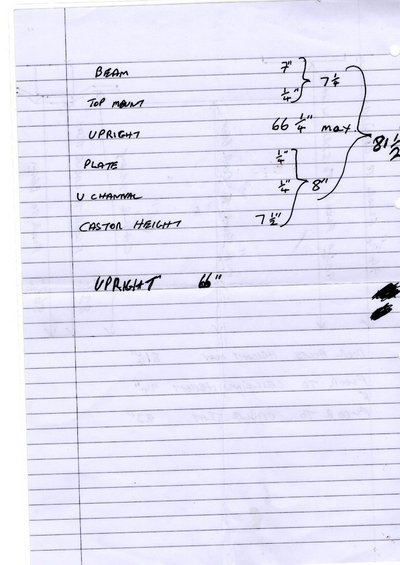 BEAM 7"
TOP MOUNT 1/4" 7 1/4
UPRIGHT 66 1/4" max 81 1/2
PLATE 1/4"
U CHANNAL 1/4" 8"
CASTOR HEIGHT 7 1/2"
UPRIGHT 66"